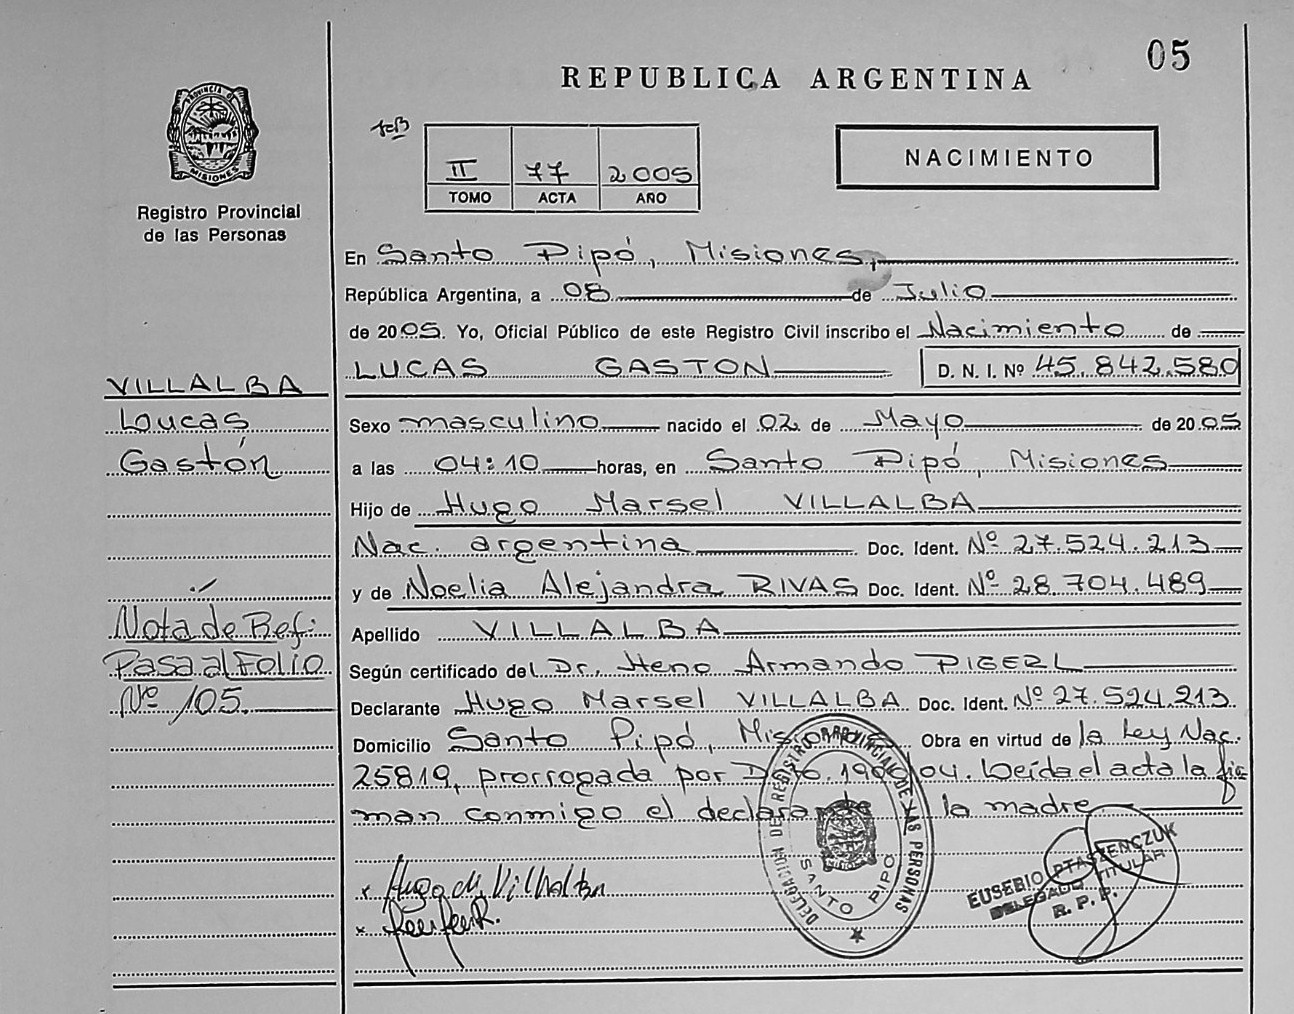 05
REPUBLICA ARGENTINA
PROVINCIA DE
MISIONES
Registro Provincial
de las Personas
II 77 2005
TOMO ACTA AÑO
NACIMIENTO
En Santo Pipó, Misiones,
República Argentina, a 08 de Julio
de 2005. Yo, Oficial Público de este Registro Civil inscribo el Nacimiento de
LUCAS GASTON D. N. I. Nº 45.842.580
VILLALBA
Loucas
Gastón
Sexo masculino nacido el 02 de Mayo de 2005
a las 04:10 horas, en Santo Pipó, Misiones
Hijo de Hugo Marsel VILLALBA
Nac. argentina Doc. Ident. Nº 27.524.213
y de Noelia Alejandra RIVAS Doc. Ident. Nº 28.704.489
Nota de Ref:
Pasa al Folio
Nº 105.
Apellido VILLALBA
Según certificado del Dr. Heno Armando PIGERL
Declarante Hugo Marsel VILLALBA Doc. Ident. Nº 27.524.213
Domicilio Santo Pipó, Misiones Obra en virtud de la Ley Nac.
25819, prorrogada por 04. Leída el acta la fir
man conmigo el declarante la madre
Hugo M. Villalba
DELEGACION DE REGISTRO PROVINCIAL DE LAS PERSONAS
SANTO PIPO
EUSEBIO PTASZENCZUK
DELEGADO TITULAR
R. P. P.